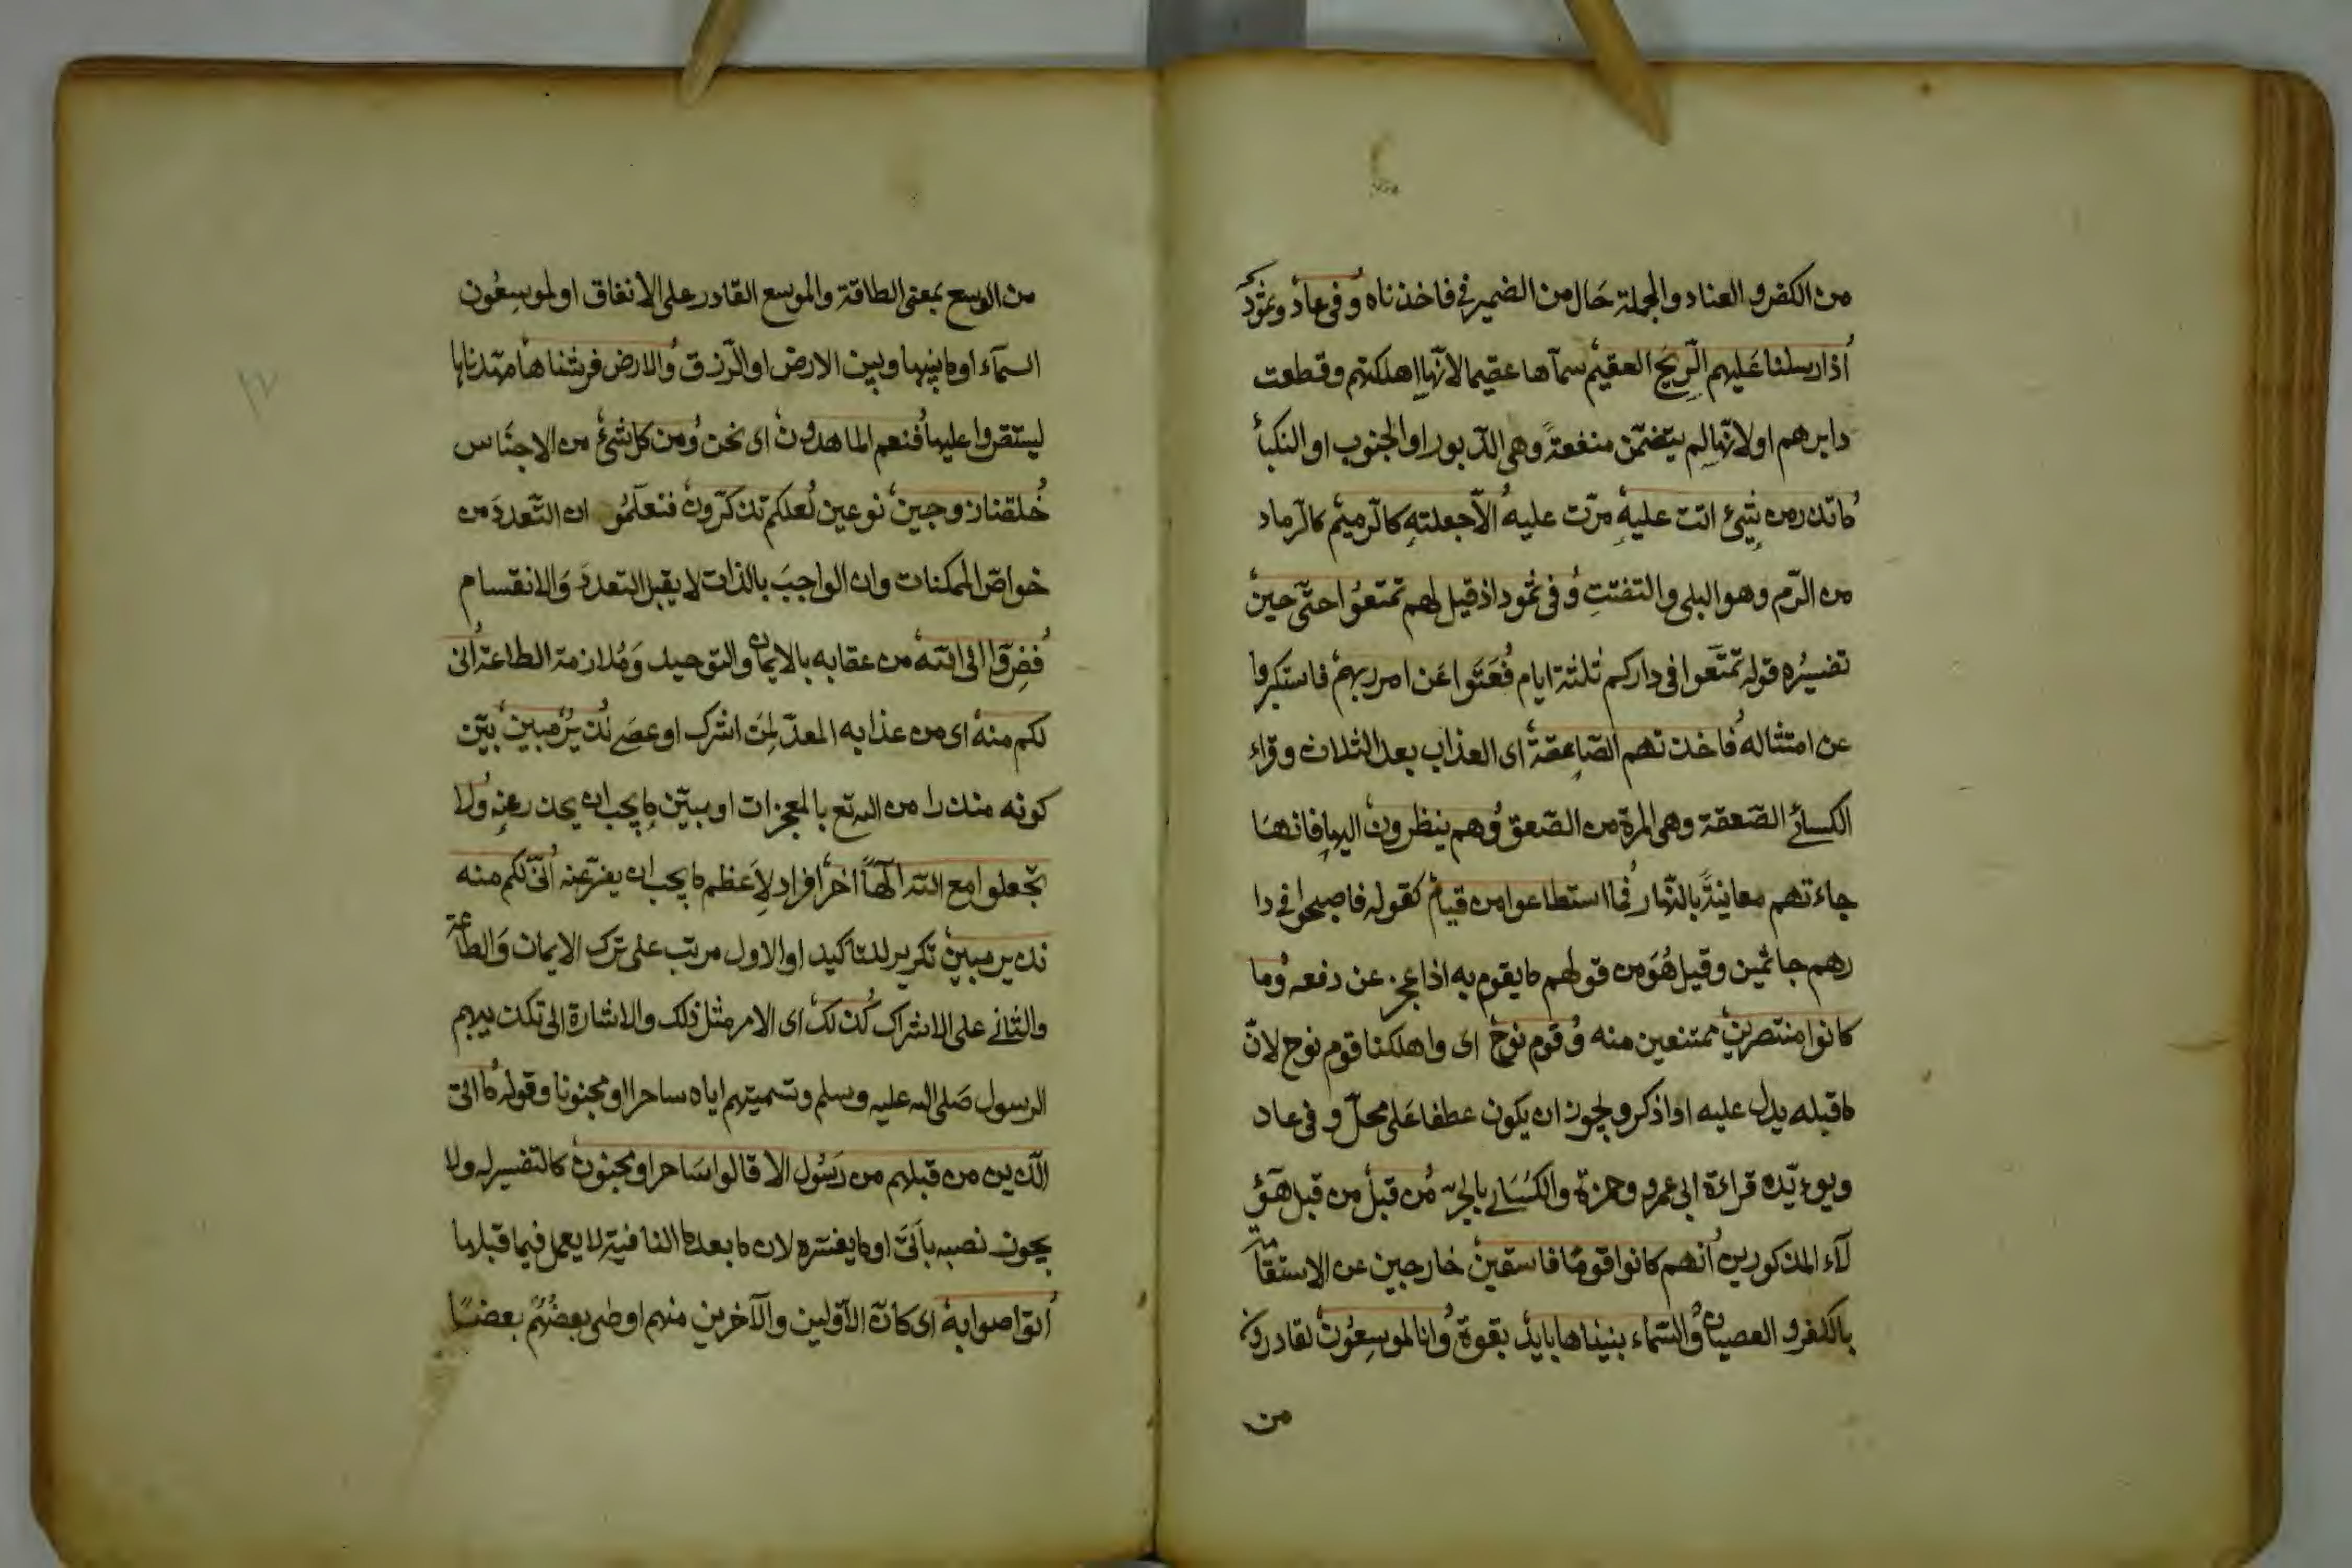 من الكفر و العناد والجملة حَال من الضمير في فاخذناه وفى عاد وثمود
اذارسلنا عَليهم الرّيحَ العقيم سمآها عقيما لانّها اهلكتهم وقطعت
دابرهم اولانّها لم يتضمّن منفعةً وهى الدّبور او الجنوب او النكبأ
ماتذر من شِيئ اتت عليهِ مرّت عليه الاّ جعلتهِ كالرّميم كالرّماد
من الرّم وهو البلى والتفتتِ وفى ثمود اذ قيل لهم تمتعُوا حتّى حين
تفسيرُه قوله تمتّعوا فى داركم ثلثة ايام فَعَتَوا عَن امر ربهم فاستكبروا
عن امتثاله فاخذتهم الصّاعِقةُ اى العذاب بعد الثلاث وقراء
الكسائے الصّعقة وهى المرة من الصّعق وُهم ينظرون اليها فانهَا
جاءتهم معاينةً بالنّهار فما استطاعوا من قيام كقوله فاصبحوا فى دا
رهم جاثمين وقيل هُوَ من قولهم ما يقوم به اذا عجز عن دفعه وُما
كانوا منتصرين ممتنعين منه وُقوم نوح اى واهلكنا قوم نوح لانّ
ماقبله يدل عليه او اذكر ويجوز ان يكون عطفا عَلى محلّ و فى عاد
ويوءيّده قراءة ابى عمرو وحمزة والكسَائے بالجر مُن قبل من قبل هٓؤ
لآء المذكورين انهم كانوا قومًا فاسقين خارجين عن الاستقامة
بالكفر و العصيان وُالسّماء بنيناها بايدٍ بقوة وُانا لموسِعُون لقادرون
من
من الوسع بمعنى الطاقة والموسع القادر على الانفاق اولموسِعُون
السمآء اومابينها وبين الارض اوالرّزق وُالارض فرشناها مهّدناها
ليستقروا عليها فُنعم الماهدون اى نحن وُمن كل شئ من الاجنَاس
خُلقنا زوجين نوعين لُعلكم تذكّرون فتعلمُو ان التّعددَ من
خواصّ الممكنات وان الواجبَ بالذات لا يقبل التعددَ وَالانقسام
فُفِرّوا الى اللّه من عقابه بالايمان والتوحيد وَمُلازمة الطاعة اُنى
لكم منه اى من عذابه المعدّ لمَن اشرك او عصَے نُذيرٌ مبينٌ بيّن
كونه منذرا من الله تع بالمعجزات اومبيّن ما يجب ان يحذر عنهِ وُلا
تجعلوا مع اللّه الٓهًا اخر افراد لاَعظم ما يجب ان يفرّ عنه اُنىّ لكم منه
نذير مبين تكرير للتاكيد اوالاول مرتب على ترك الايمان وَالطاعة
والثانے على الاشراك كُذلك اى الامر مثل ذلك والاشارة الى تكذيبهم
الرسول صَلى الله عليه وسلم وتسميتهم اياه ساحرا اومجنونا وقوله مُا اتى
الّذين من قبلهم من رَسُول الا قالوا سَاحر اومجنون كالتفسير له ولا
يجوز نصبه بأتىَ اومايفسّره لان مابعد ما النافية لا يعمل فيما قبلها
اُتواصوابه اى كانّ الاوّلين والآخرين منهم اوصٰى بعضُهُم بعضًا